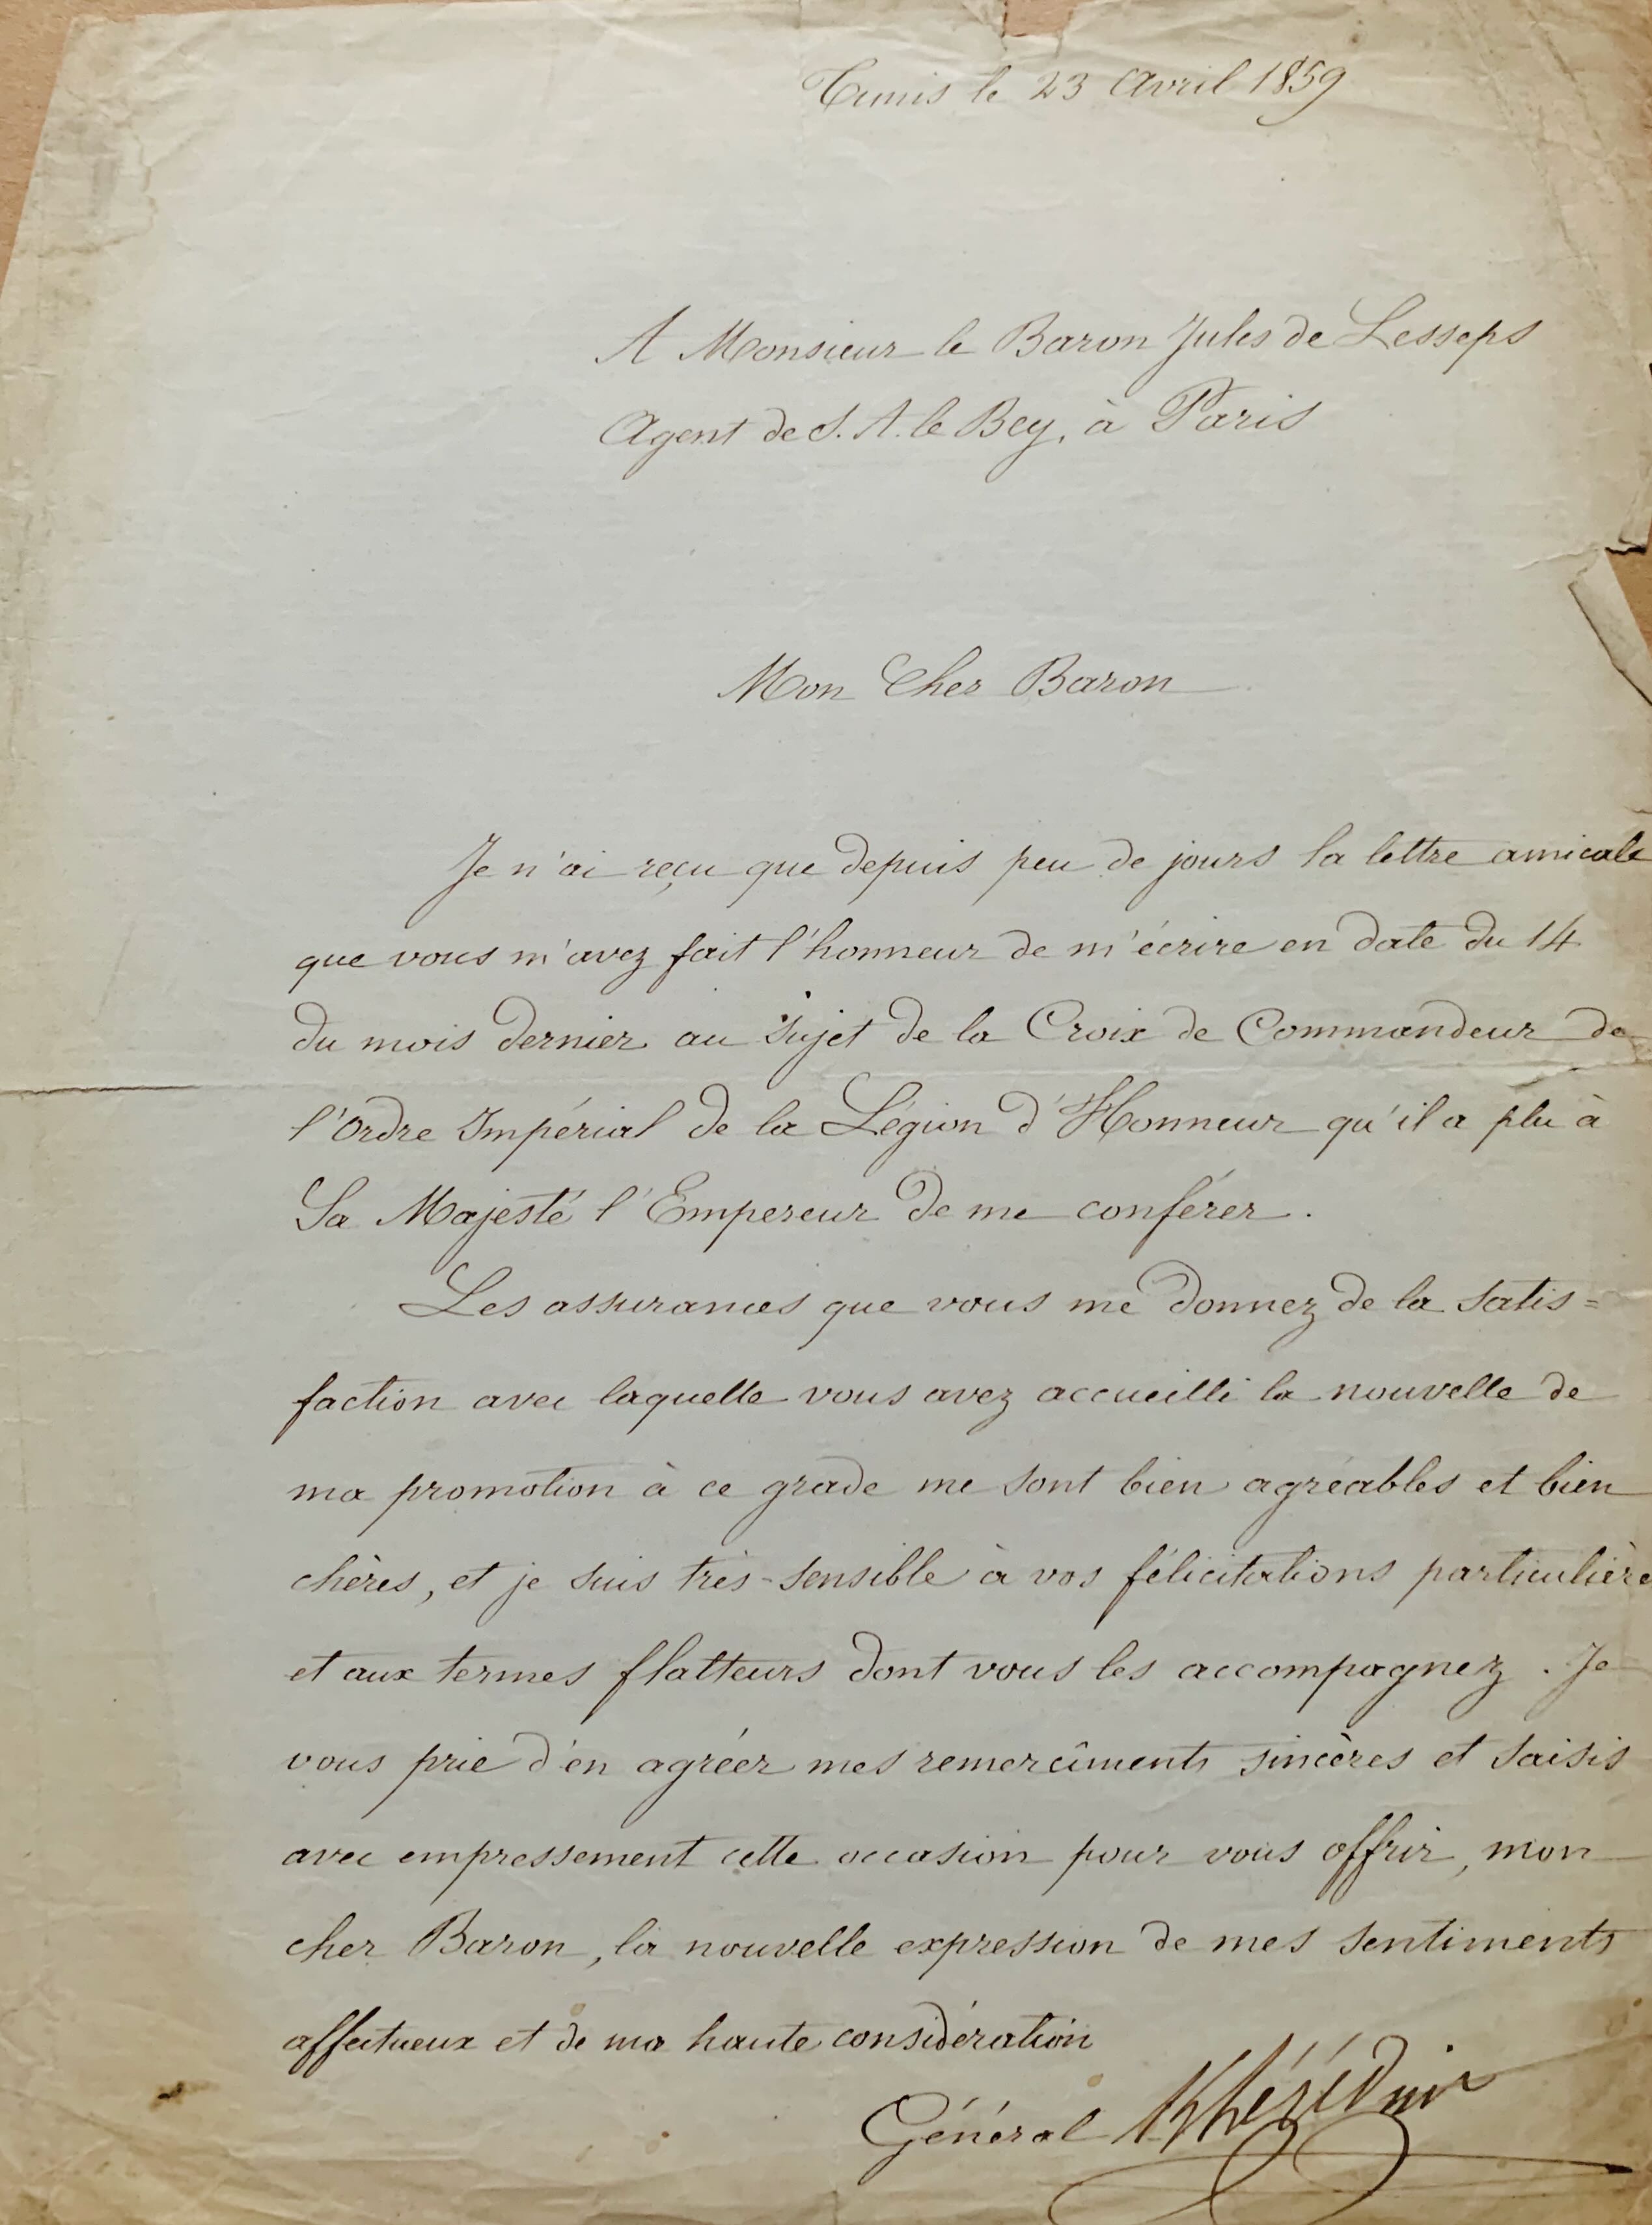 Tunis le 23 Avril 1859
A Monsieur le Baron Jules de Lesseps
Agent de S. A. le Bey, à Paris
Mon Cher Baron
Je n'ai reçu que depuis peu de jours la lettre amicale
que vous m'avez fait l'honneur de m'écrire en date du 14
du mois dernier au sujet de la Croix de Commandeur de
l'Ordre Impérial de la Légion d'Honneur qu'il a plu à
Sa Majesté l'Empereur de me conférer.
Les assurances que vous me donnez de la satis=
faction avec laquelle vous avez accueilli la nouvelle de
ma promotion à ce grade me sont bien agréables et bien
chères, et je suis très-sensible à vos félicitations particulière
et aux termes flatteurs dont vous les accompagnez. Je
vous prie d'en agréer mes remercîments sincères et saisis
avec empressement cette occasion pour vous offrir, mon
cher Baron, la nouvelle expression de mes sentiments
affectueux et de ma haute considération
Général Khérédine